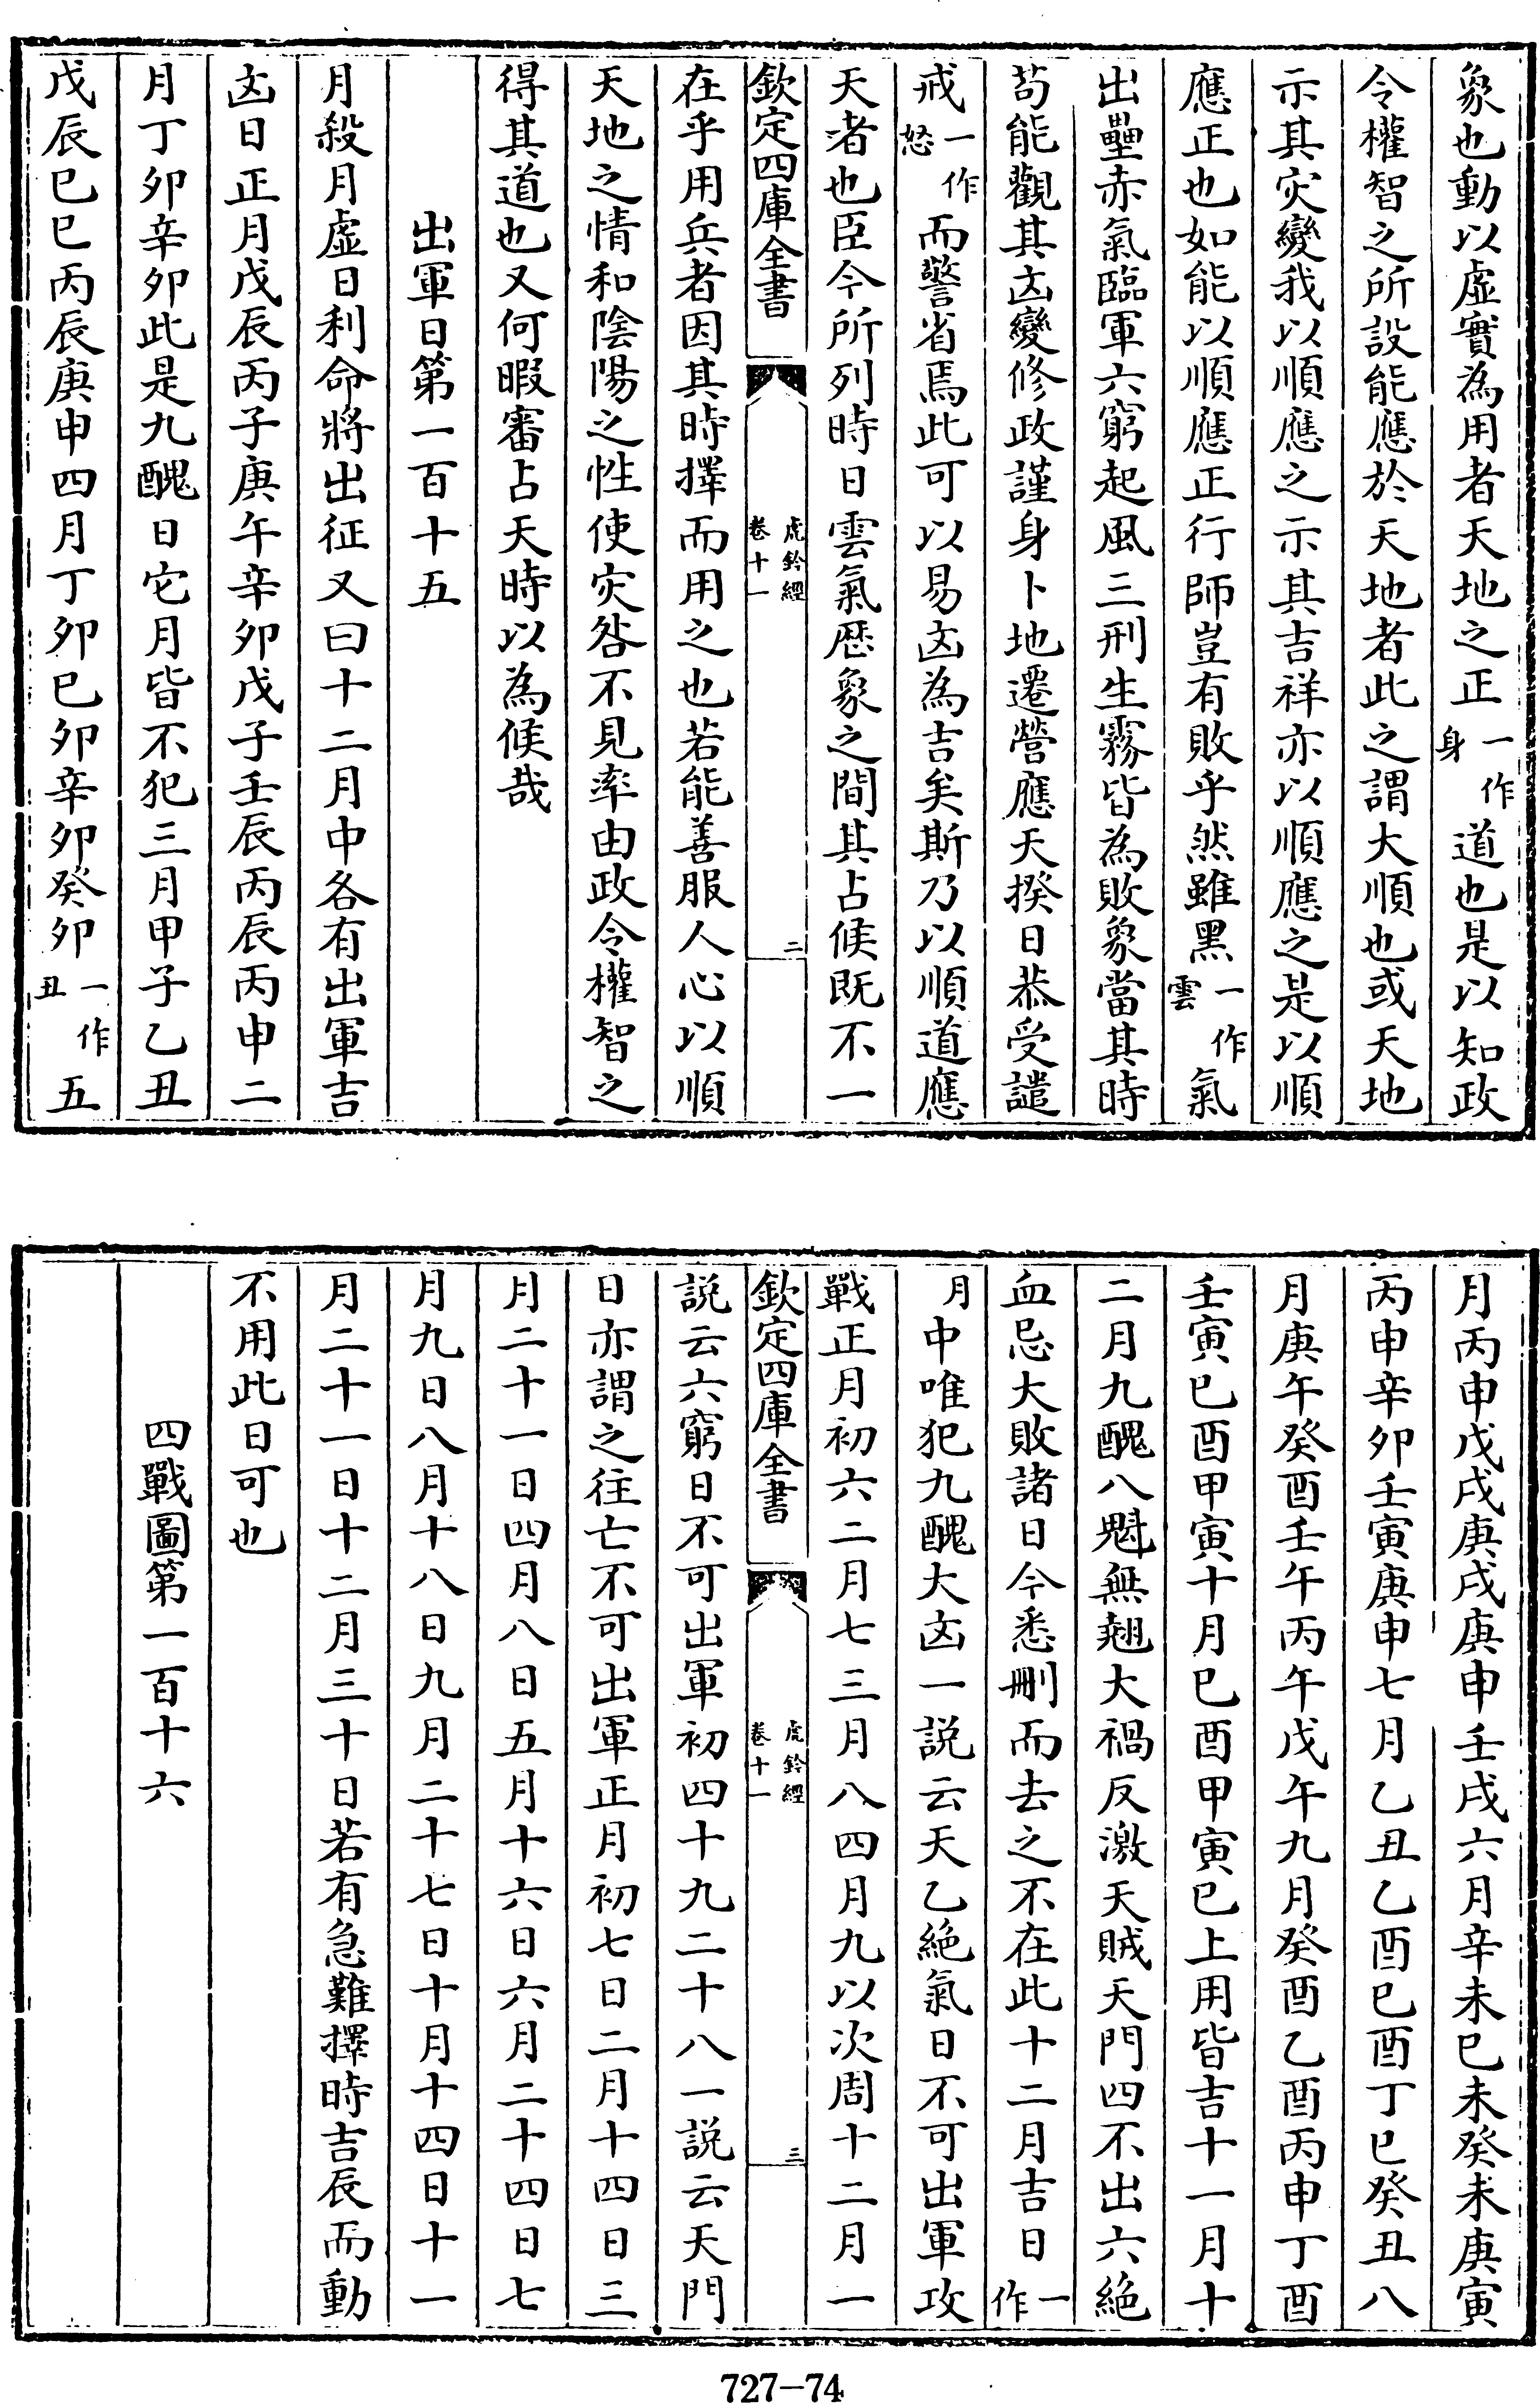 象也動以虛實為用者天地之正一作身道也是以知政
令權智之所設能應於天地者此之謂大順也或天地
示其灾變我以順應之示其吉祥亦以順應之是以順
應正也如能以順應正行師豈有敗乎然雖黑一作雲氣
出壘赤氣臨軍六窮起風三刑生霧皆為敗象當其時
苟能觀其凶變修政謹身卜地遷營應天揆日恭受譴
戒一作怒而警省焉此可以易凶為吉矣斯乃以順道應
天者也臣今所列時日雲氣歴象之間其占候既不一
欽定四庫全書 虎鈐經卷十一 二
在乎用兵者因其時擇而用之也若能善服人心以順
天地之情和陰陽之性使灾咎不見率由政令權智之
得其道也又何暇審占天時以為候哉
出軍日第一百十五
月殺月虛日利命將出征又曰十二月中各有出軍吉
凶日正月戊辰丙子庚午辛卯戊子壬辰丙辰丙申二
月丁卯辛卯此是九醜日它月皆不犯三月甲子乙丑
戊辰巳巳丙辰庚申四月丁卯巳卯辛卯癸卯一作丑五
月丙申戊戌庚戌庚申壬戌六月辛未巳未癸未庚寅
丙申辛卯壬寅庚申七月乙丑乙酉巳酉丁巳癸丑八
月庚午癸酉壬午丙午戊午九月癸酉乙酉丙申丁酉
壬寅巳酉甲寅十月巳酉甲寅巳上用皆吉十一月十
二月九醜八魁無翹大禍反激天賊天門四不出六絶
血忌大敗諸日今悉刪而去之不在此十二月吉日一作
月中唯犯九醜大凶一説云天乙絶氣日不可出軍攻
戰正月初六二月七三月八四月九以次周十二月一
欽定四庫全書 虎鈐經卷十一 三
説云六窮日不可出軍初四十九二十八一説云天門
日亦謂之往亡不可出軍正月初七日二月十四日三
月二十一日四月八日五月十六日六月二十四日七
月九日八月十八日九月二十七日十月十四日十一
月二十一日十二月三十日若有急難擇時吉辰而動
不用此日可也
四戰圖第一百十六
727-74